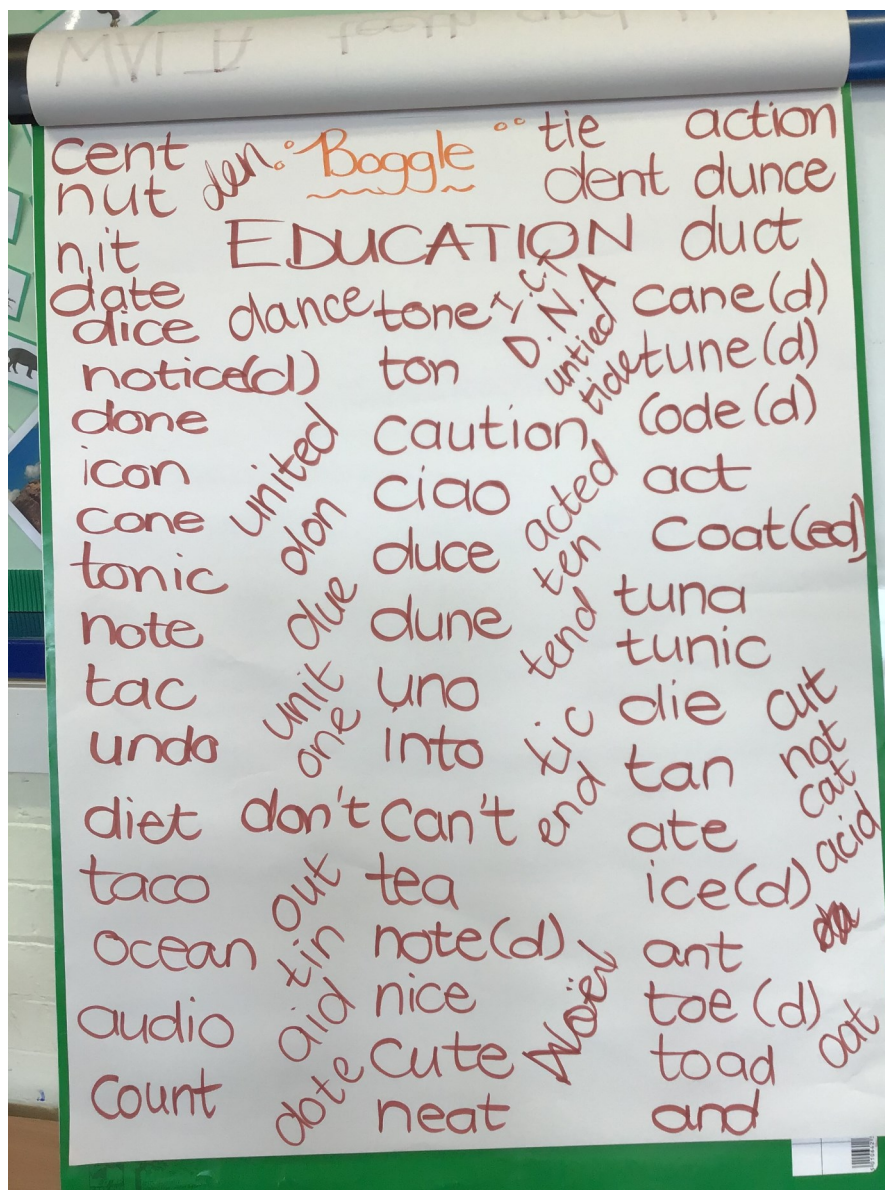 WALTA teeth and
Boggle
EDUCATION
cent
nut
den
nit
date
dice
notice(d)
done
icon
cone
tonic
note
tac
undo
diet
taco
ocean
audio
count
dance
united
don
due
unit
one
don't
out
tin
aid
dote
tone
ton
caution
ciao
duce
dune
uno
into
can't
tea
note(d)
nice
cute
neat
I.C.T
D.N.A
untied
tide
acted
ten
tend
tic
end
Noël
tie
dent
action
dunce
duct
cane(d)
tune(d)
code(d)
act
coat(ed)
tuna
tunic
die
tan
ate
ice(d)
ant
toe(d)
toad
and
cut
not
cat
acid
oat